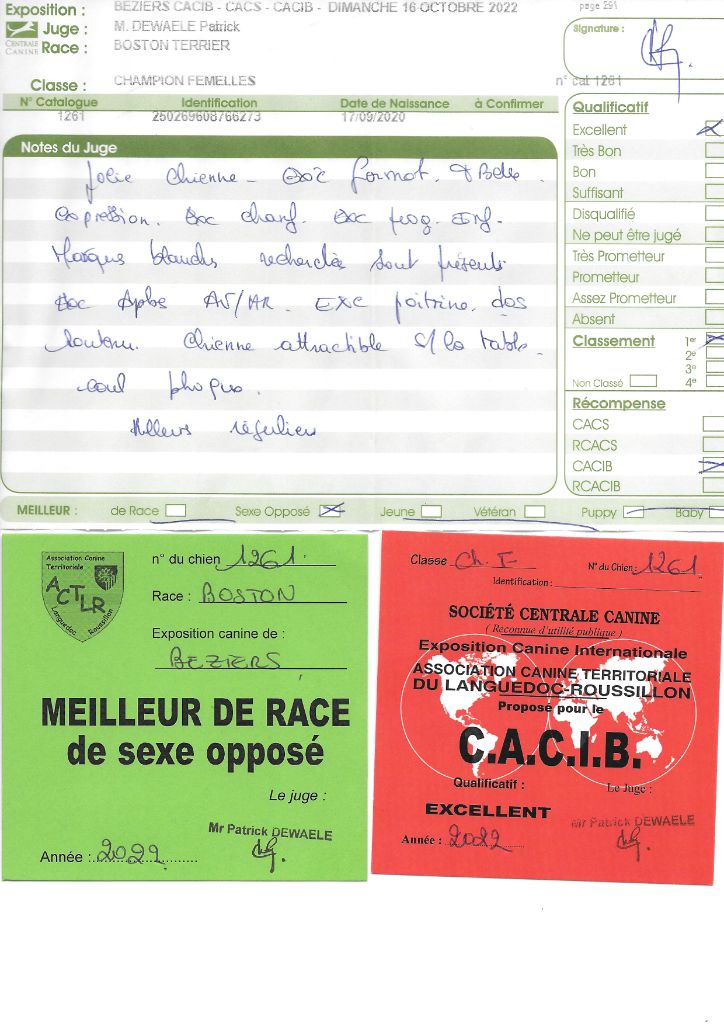 Exposition : BEZIERS CACIB - CACS - CACIB - DIMANCHE 16 OCTOBRE 2022
page 291
CENTRALE CANINE
Juge : M. DEWAELE Patrick
Race : BOSTON TERRIER
Signature :
Classe : CHAMPION FEMELLES
n° cat 1261
N° Catalogue Identification Date de Naissance à Confirmer
1261 250269608766273 17/09/2020
Notes du Juge
Jolie chienne - Exc format. + Belle
expression. Exc chanf. Exc prog.
Marques blanches recherchées sont présents
Exc Aplbs AV/AR. EXC poitrine. dos
soutenu. Chienne attractible s/ la table.
Allures régulières
Qualificatif
Excellent
Très Bon
Bon
Suffisant
Disqualifié
Ne peut être jugé
Très Prometteur
Prometteur
Assez Prometteur
Absent
Classement 1er
2e
3e
Non Classé 4e
Récompense
CACS
RCACS
CACIB
RCACIB
MEILLEUR : de Race Sexe Opposé Jeune Vétéran Puppy Baby
Association Canine
Territoriale
ACTLR
Languedoc Roussillon
n° du chien 1261
Race : BOSTON
Exposition canine de :
BEZIERS
MEILLEUR DE RACE
de sexe opposé
Le juge :
Mr Patrick DEWAELE
Année : 2022
Classe Ch. F N° du Chien : 1261
Identification :
SOCIÉTÉ CENTRALE CANINE
( Reconnue d'utilité publique )
Exposition Canine Internationale
ASSOCIATION CANINE TERRITORIALE
DU LANGUEDOC-ROUSSILLON
Proposé pour le
C.A.C.I.B.
Qualificatif : Le Juge :
EXCELLENT
Mr Patrick DEWAELE
Année : 2022